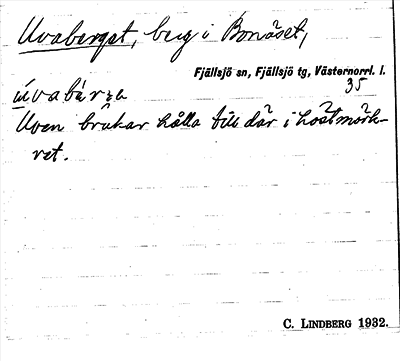 Uvaberget, berg i Bonäset,
Fjällsjö sn, Fjällsjö tg, Västernorrl. l.
35
Uven brukar hålla till där i höstmörk-
ret.
C. LINDBERG 1932.